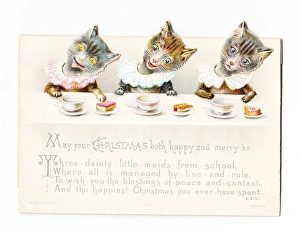 May your CHRISTMAS both happy and merry be.
Three dainty little maids from school.
Where all is managed by line and rule.
To wish you the blessings of peace and content.
And the happiest Christmas you ever have spent.